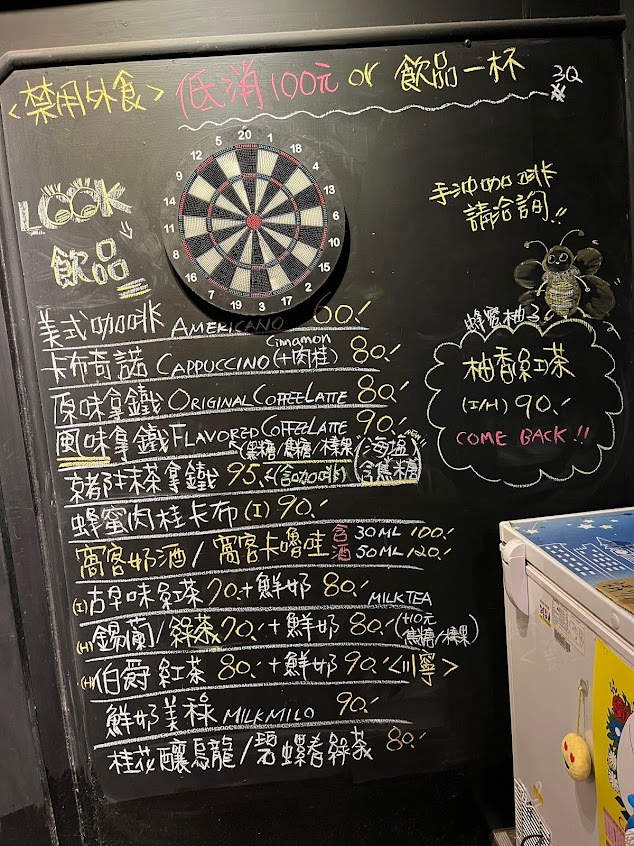 <禁用外食> 低消100元 or 飲品一杯 3Q
LOOK
飲品
手沖咖啡
請洽詢!!
20 1 18 4 13 6 10 15 2 17 3 19 7 16 8 11 14 9 12 5
美式咖啡 AMERICANO 60.-
卡布奇諾 CAPPUCCINO (+肉桂) Cinnamon 80.-
原味拿鐵 ORIGINAL COFFEE LATTE 80.-
風味拿鐵 FLAVORED COFFEE LATTE 90.-
(黑糖/焦糖/榛果) (海塩含焦糖)
京都抹茶拿鐵 95.- (含咖啡)
蜂蜜肉桂卡布 (I) 90.-
窩客奶酒/窩客卡嚕哇 含酒 30ML 100.- 50ML 120.-
(I) 古早味紅茶 70.+鮮奶 80.- MILK TEA
(H) 錫蘭/綠茶 70.+鮮奶 80.- (+10元 焦糖/榛果)
(H) 伯爵紅茶 80.+鮮奶 90.- <川寧>
鮮奶美祿 MILK MILO 90.-
桂花釀烏龍/碧螺春綠茶 80.-
蜂蜜柚子
柚香紅茶
(I/H) 90.-
COME BACK!!